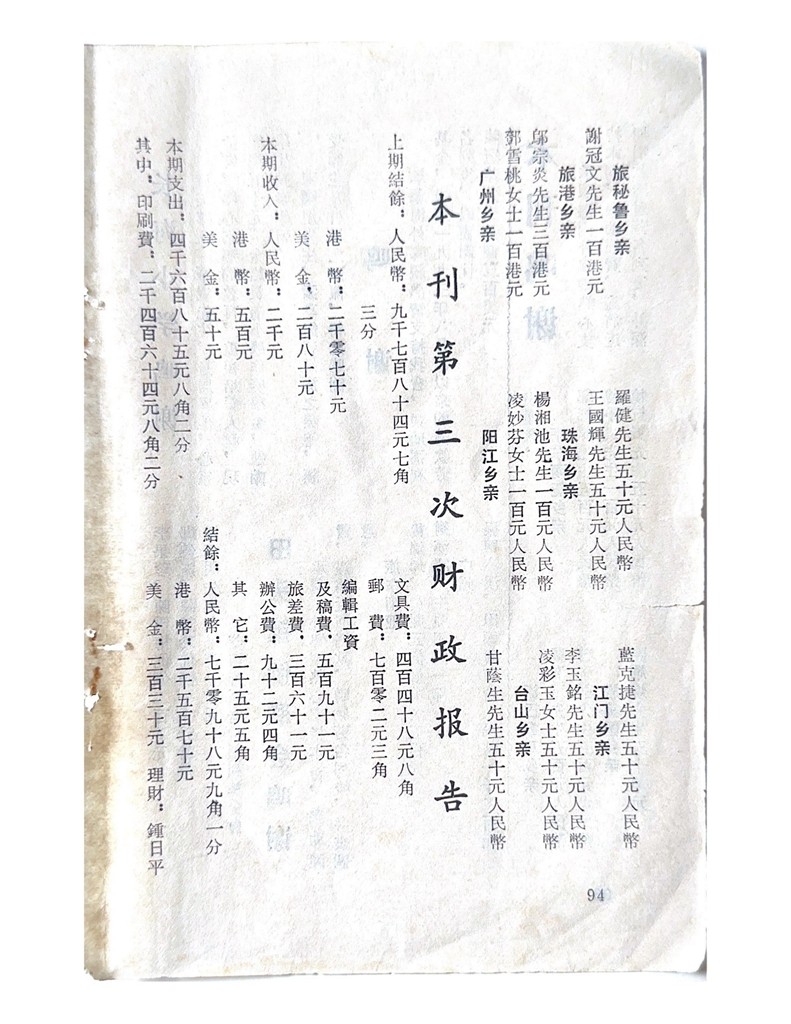 旅秘鲁乡亲
謝冠文先生一百港元
旅港乡亲
邬宗炎先生三百港元
郭雪桃女士一百港元
广州乡亲
羅健先生五十元人民幣
王國輝先生五十元人民幣
珠海乡亲
楊湘池先生一百元人民幣
凌妙芬女士一百元人民幣
阳江乡亲
藍克捷先生五十元人民幣
江门乡亲
李玉銘先生五十元人民幣
凌彩玉女士五十元人民幣
台山乡亲
甘蔭生先生五十元人民幣
本刊第三次财政报告
上期結餘：人民幣：九千七百八十四元七角
三分
港幣：二千零七十元
美金：二百八十元
本期收入：人民幣：二千元
港幣：五百元
美金：五十元
本期支出：四千六百八十五元八角二分
其中：印刷費：二千四百六十四元八角二分
文具費：四百四十八元八角
郵費：七百零二元三角
編輯工資
及稿費：五百九十一元
旅差費：三百六十一元
辦公費：九十二元四角
其它：二十五元五角
結餘：人民幣：七千零九十八元九角一分
港幣：二千五百七十元
美金：三百三十元 理財：鍾日平
94